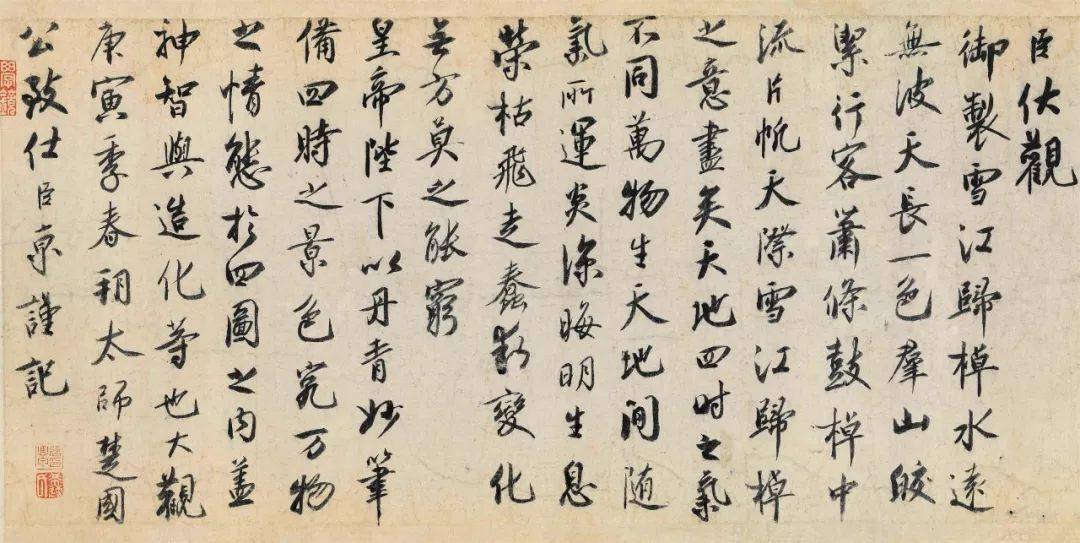 臣伏觀
御製雪江歸棹水遠
無波天長一色羣山皎
潔行客蕭條鼓棹中
流片帆天際雪江歸棹
之意盡矣天地四时之氣
不同萬物生天地間随
氣所運炎涼晦明生息
榮枯飛走蠢動變化
無方莫之能窮
皇帝陛下以丹青妙筆
備四時之景色究万物
之情態於四圖之内蓋
神智與造化等也大觀
庚寅季春朔太師楚國
公致仕臣京謹記